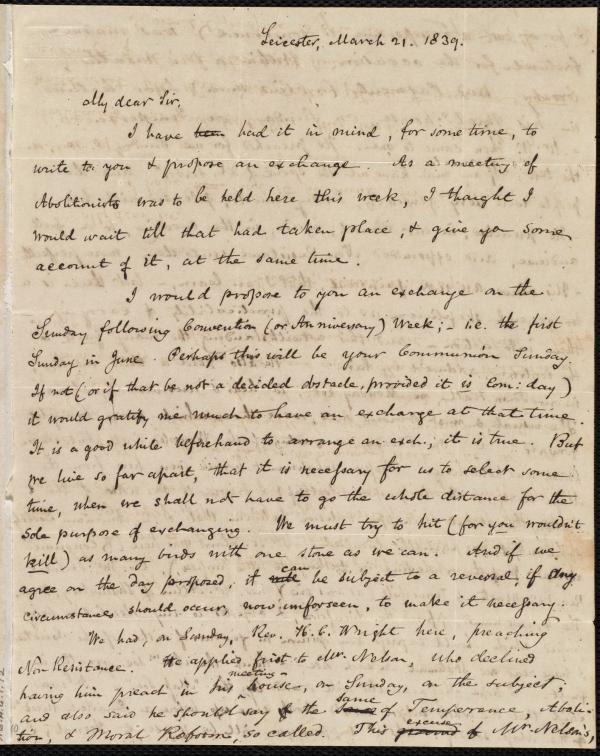 Leicester, March 21. 1839.
My dear Sir,
I have been had it in mind, for some time, to
write to you & propose an exchange. As a meeting of
Abolitionists was to be held here this week, I thought I
would wait till that had taken place, & give you some
account of it, at the same time.
I would propose to you an exchange on the
Sunday following Convention (or Anniversary) Week; - i.e. the first
Sunday in June. Perhaps this will be your Communion Sunday.
If not (or if that be not a decided obstacle, provided it is Com: day)
it would gratify me much to have an exchange at that time.
It is a good while beforehand to arrange an exch., it is true. But
we live so far apart, that it is necessary for us to select some
time, when we shall not have to go the whole distance for the
sole purpose of exchanging. We must try to hit (for you wouldn't
kill) as many birds with one stone as we can. And if we
agree on the day proposed, it will can be subject to a reversal, if any
circumstances should occur, now unforseen, to make it necessary.
We had, on Sunday, Rev. H. C. Wright here, preaching
Non Resistance. He applied first to Mr. Nelson, who declined
having him preach in his meeting-house, on Sunday, on the subject;
and also said he should say the same of Temperance, Aboli-
tion, & Moral Reform, so called. This ground excuse of Mr. Nelson's,